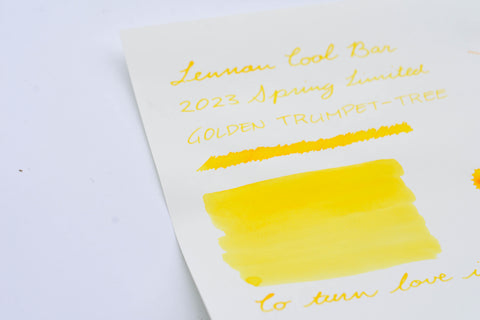 Lennon Tool Bar
2023 Spring Limited
GOLDEN TRUMPET-TREE
To turn love i